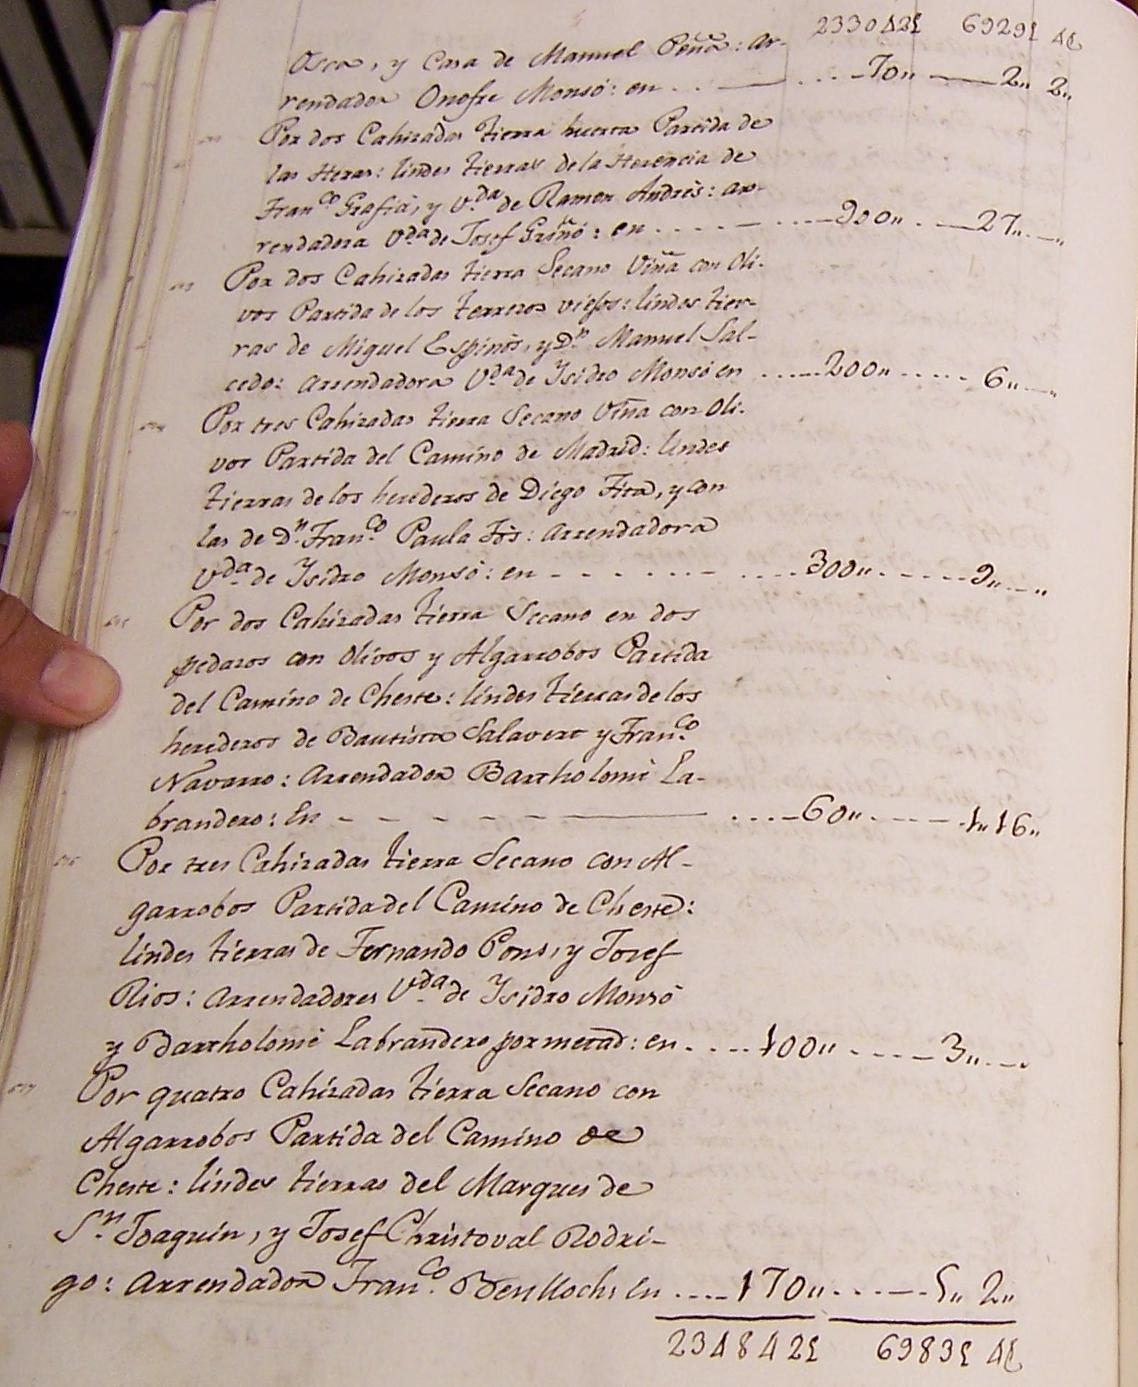 233042£ 6929£ 4£
Osca, y Casa de Manuel Peña: Ar-
rendador Onofre Monsó: en . . —— . . . . 70,, —— 2,, 2,,
Por dos Cahizadas tierra huerta Partida de
las Heras: lindes tierras de la Herencia de
Franco. Grafiá, y Vda. de Ramon Andrés: ar-
rendadora Vda. de Josef Griñó: en . . . . - . . . . 900,, . — 27,, . — ,,
Por dos Cahizadas tierra Secano Viña con Oli-
vos Partida de los terreros viejos: lindes tier-
ras de Miguel Espinós, y Dn. Manuel Sal-
cedo: Arrendadora Vda. de Ysidro Monsó en . . . . . 200,, . . . . . 6,, . — ,,
Por tres Cahizadas tierra Secano Viña con Oli-
vos Partida del Camino de Madrid: lindes
tierras de los herederos de Diego Fita, y con
las de Dn. Franco. Paula Fòs: Arrendadora
Vda. de Ysidro Monsó: en - - - - - - . . . . 300,, . . . . . 9,, . — ,,
Por dos Cahizadas tierra Secano en dos
pedazos con Olivos y Algarrobos Partida
del Camino de Cheste: lindes tierras de los
herederos de Bautista Salavert y Franco.
Navarro: Arrendador Bartholomé La-
brandero: En - - - - - —— . . . . 60,, . - - - - 1,, 16,,
Por tres Cahizadas tierra Secano con Al-
garrobos Partida del Camino de Cheste:
lindes tierras de Fernando Pons, y Josef
Rios: Arrendadores Vda. de Ysidro Monsó
y Bartholomé Labrandero por metad: en . . . . 100,, . - - - - 3,, . — ,,
Por quatro Cahizadas tierra Secano con
Algarrobos Partida del Camino de
Cheste: lindes tierras del Marques de
Sn. Joaquin, y Josef Christoval Rodri-
go: Arrendador Franco. Benlloch: En . . . . 170,, . . . . - - 5,, 2,,
234842£ 6983£ 4£